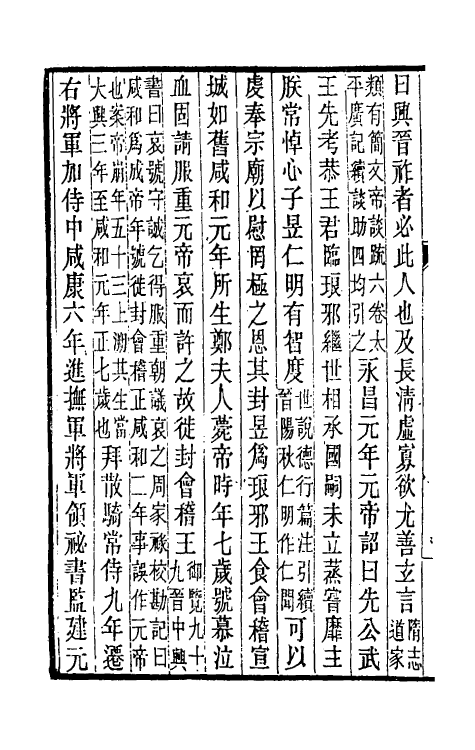 曰興晉祚者必此人也及長清虛寡欲尤善玄言隋志道家
類有簡文帝談疏六卷太平廣記續談助四均引之永昌元年元帝詔曰先公武
王先考恭王君臨琅邪繼世相承國嗣未立蒸嘗靡主
朕常悼心子昱仁明有智度世說德行篇注引續晉陽秋仁明作仁聞可以
虔奉宗廟以慰罔極之恩其封昱為琅邪王食會稽宣
城如舊咸和元年所生鄭夫人薨帝時年七歲號慕泣
血固請服重元帝哀而許之故徙封會稽王御覽九十九晉中興
書曰哀號守誠乞得服重朝議哀之周家祿校勘記曰咸和為成帝年號徙封會稽正咸和二年事誤作元帝
也案帝崩年五十三上溯其生當大興三年至咸和元年正七歲也拜散騎常侍九年遷
右將軍加侍中咸康六年進撫軍將軍領祕書監建元